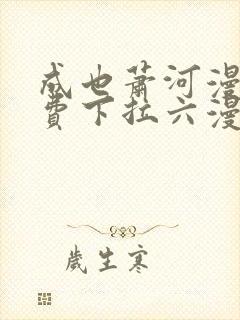 成也萧河漫
费下拉六漫
岁生寒